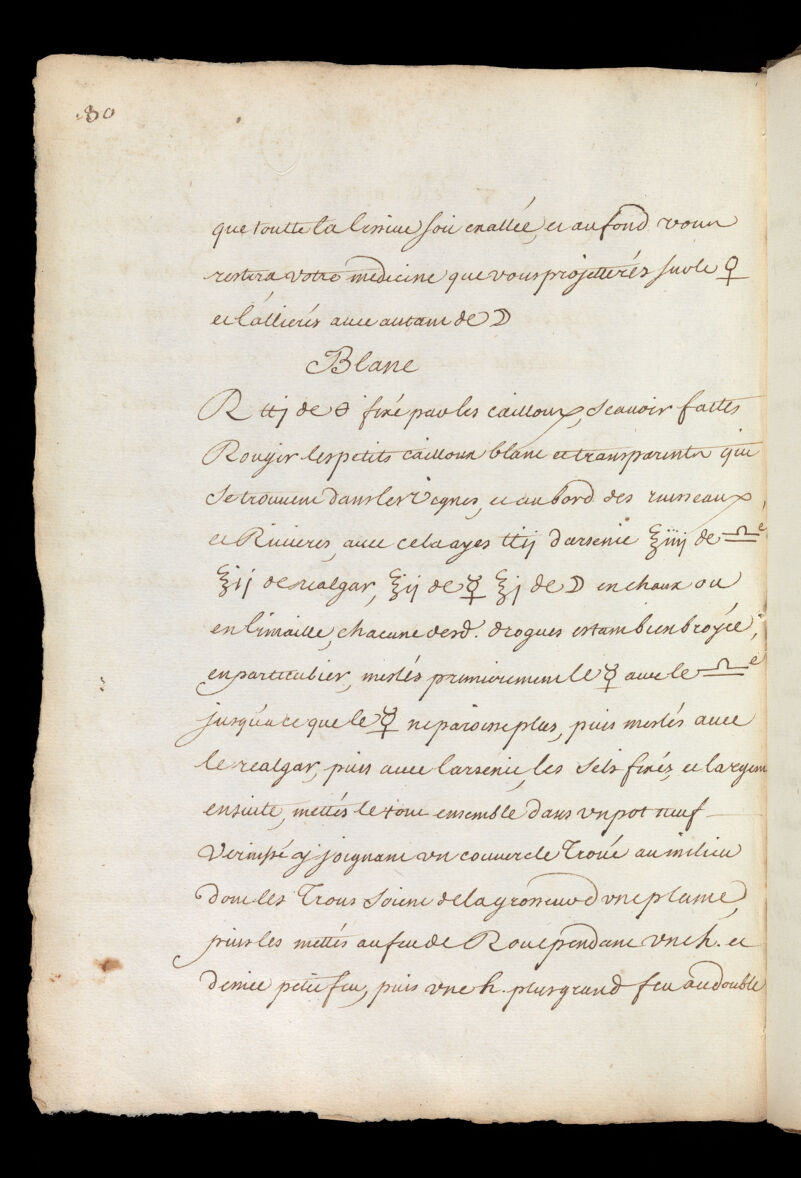 80
que toutte la lissive soit en allée, et au fond vous
restera votre medecine que vous projetterés sur le ♀
et l'allierés avec autant de ☽
Blanc
R ttj de fixé par les cailloux, scavoir faites
Rougir les petits cailloux blanc et transparents qui
se trouvent dans les vignes, et au bord des ruisseaux,
et Rivieres, avec cela ayes ttij d'arsenic ℥iiij de ♎︎é
℥ij de realgar, ℥ij de ☿ ℥j de ☽ en chaux ou
en limaille, chacune desd. drogues estant bien broyée,
en particulier, meslés premierement le ☿ avec le ♎︎é
jusqu'a ce que le ☿ ne paroisse plus, puis meslés avec
le realgar, puis avec l'arsenic, les sels fixés, et l'argent
ensuite, mettés le tout ensemble dans un pot neuf
Vernissé y joignant un couvercle Troüé au milieu
dont les Trous soient de la grosseur d'une plume,
puis les mettés au feu de Roue pendant une h. et
demiee petit feu, puis une h. plus grand feu au double